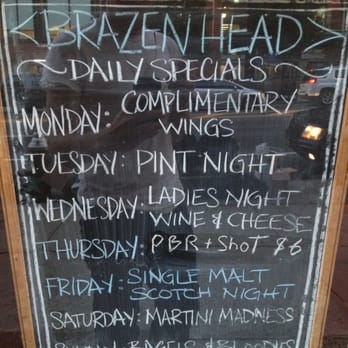 <BRAZEN HEAD>
~DAILY SPECIALS~
MONDAY: COMPLIMENTARY
WINGS
TUESDAY: PINT NIGHT
WEDNESDAY: LADIES NIGHT
WINE & CHEESE
THURSDAY: PBR + SHOT $6
FRIDAY: SINGLE MALT
SCOTCH NIGHT
SATURDAY: MARTINI MADNESS
SUNDAY: BAGELS & BLOODIES